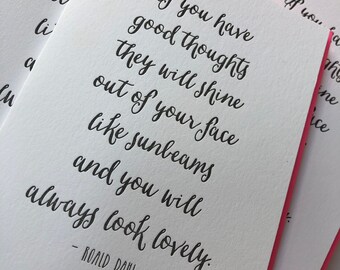 you have
good thoughts
they will shine
out of your face
like sunbeams
and you will
always look lovely.
- ROALD